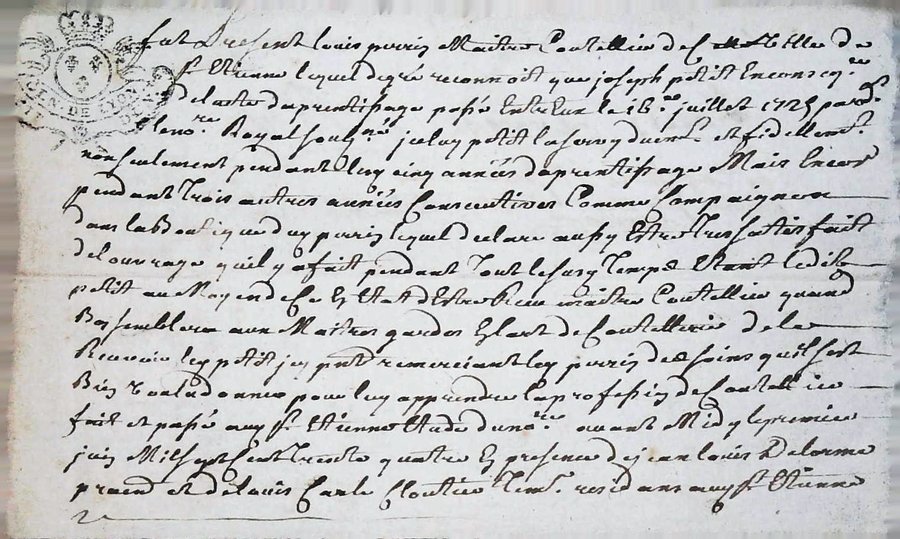 GEN. DE LYON
fut present louis perrin Maitre Coutellier de la ville de
st Etienne lequel de gré reconnoit que joseph petit En consequ.ce
de lacte daprentissage passé Entre Eux le 16.e juillet 1725 pard.t
le no.re Royal sousig.né jceluy petit la servy duem.t et fidellem.t
non seulement pendant les cinq années daprentissage Mais Encore
pendant Trois autres années Consecutives Comme Compaignon
dans la Boutique dud perrin lequel declare aussy Estre Tres satisfait
de louvrage quil y a fait pendant Tout le susd Temps Etant ledit
petit au Moyen de Ce En Etat dEstre Receu maitre Coutellier quand
Bon semblera aux Maitres gardes En lart de Coutellerie de le
Recevoir led petit jcy pnt remerciant led perrin des soins quil sest
Bien voulu donner pour luy apprendre la profession de Coutellier
fait et passé aud st Etienne Etude du no.re avant Midy le premier
juin Mil sept Cent Trente quatre En presence de jean louis Delorme
pratd et de louis Carle Cloutier Tem.s residans aud st Etienne